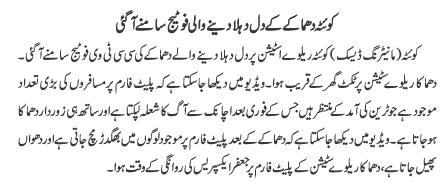 کوئٹہ دھماکے کے دل دہلا دینے والی فوٹیج سامنے آگئی
کوئٹہ (مانیٹرنگ ڈیسک) کوئٹہ ریلوے اسٹیشن پر دل دہلا دینے والے دھماکے کی سی سی ٹی وی فوٹیج سامنے آگئی۔
دھماکا ریلوے سٹیشن پر ٹکٹ گھر کے قریب ہوا۔ ویڈیو میں دیکھا جاسکتا ہے کہ پلیٹ فارم پر مسافروں کی بڑی تعداد
موجود ہے جو ٹرین کی آمد کے منتظر ہیں جس کے فوری بعد اچانک سے آگ کا شعلہ لپکتا ہے اور ساتھ ہی زور دار دھماکا
ہوجاتا ہے۔ ویڈیو میں دیکھا جاسکتا ہے کہ دھماکے کے بعد پلیٹ فارم پر موجود لوگوں میں بھگدڑ مچ جاتی ہے اور دھواں
پھیل جاتا ہے، دھماکا ریلوے سٹیشن کے پلیٹ فارم پر جعفر ایکسپریس کی روانگی کے وقت ہوا۔